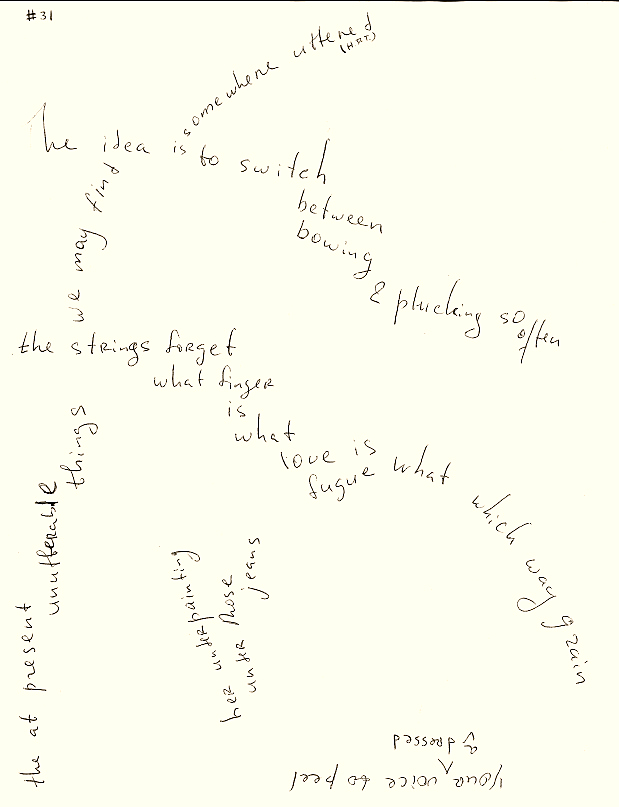 #31
The idea is to switch
between
bowing
& plucking so
often
the strings forget
what finger
is
what
love is
fugue what
which way grain
the at present
unutterable
things
we may find
somewhere uttered
(HDT.)
her underpainting
under those
jeans
your voice to peel
a dressed